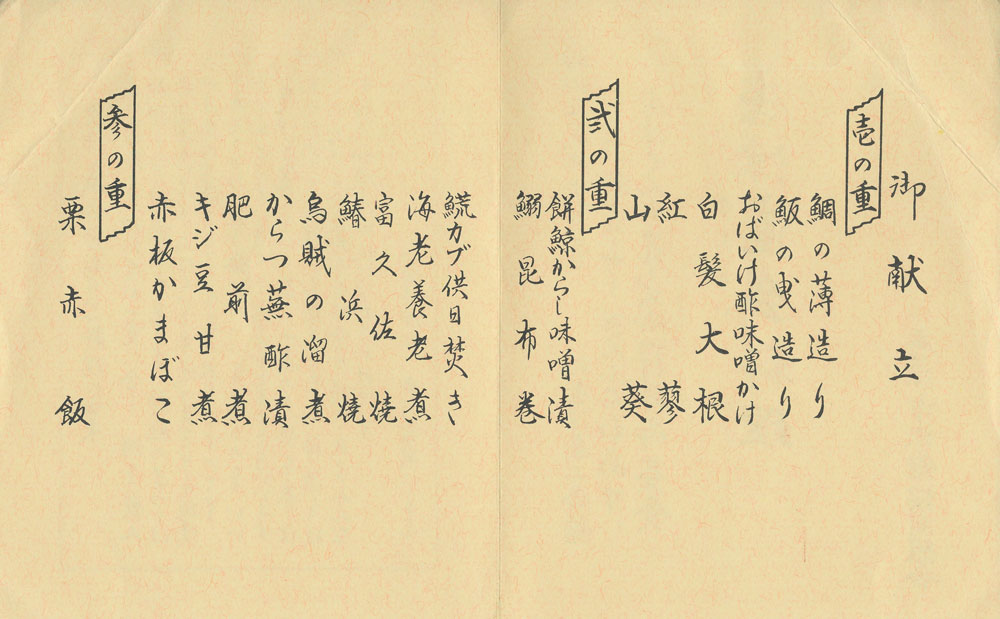 御献立
壱の重
鯛の薄造り
鰒の曳造り
おばいけ酢味噌かけ
白髪大根
紅蓼
山葵
弐の重
餅鯨からし味噌漬
鰯昆布巻
カブ供日焚き
海老養老煮
富久佐焼
鰆浜焼
烏賊の溜煮
からつ蕪酢漬
肥前煮
キジ豆甘煮
赤板かまぼこ
参の重
栗赤飯